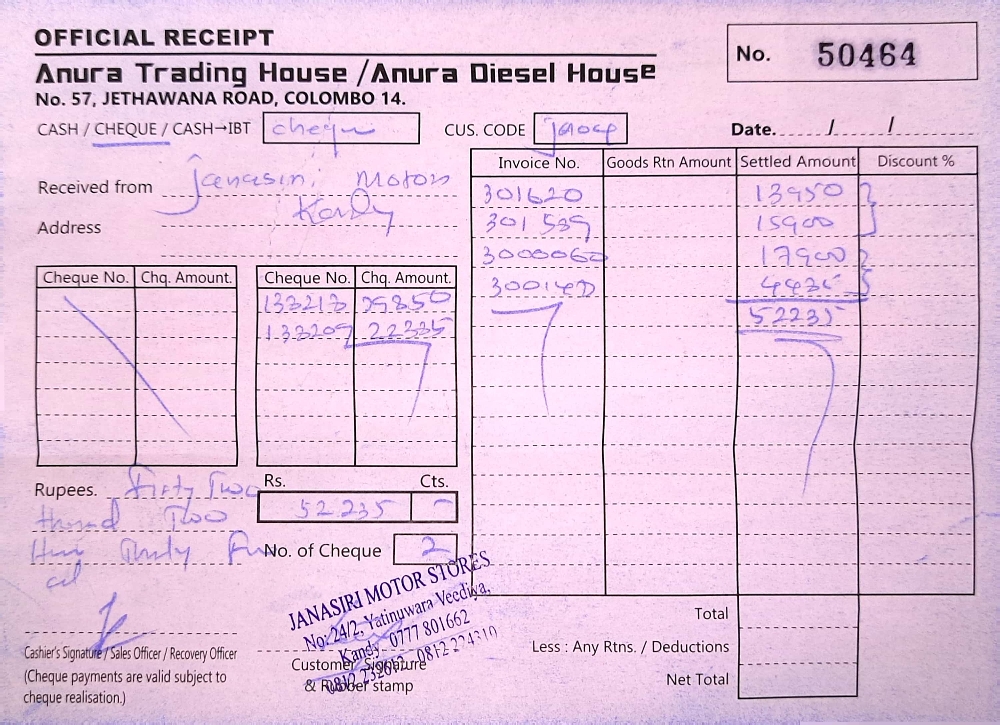 OFFICIAL RECEIPT
No. 50464
Anura Trading House / Anura Diesel House
No. 57, JETHAWANA ROAD, COLOMBO 14.
CASH / CHEQUE / CASH→IBT
CUS. CODE
Date. / /
Invoice No. Goods Rtn Amount Settled Amount Discount %
Received from Kandy
Address
301620 13950
301539 15900
3000060 17900
4435
52235
Cheque No. Chq. Amount.
Cheque No. Chq. Amount.
133213 29850
133209 22335
Rupees. Fifty Two
Two
Rs. Cts.
52235 -
No. of Cheque 2
JANASIRI MOTOR STORES
No: 24/2, Yatinuwara Veediya,
Kandy 0777 801662
0812 232612 0812 224310
Cashier's Signature / Sales Officer / Recovery Officer
(Cheque payments are valid subject to
cheque realisation.)
Customer Signature
& Rubber stamp
Total
Less : Any Rtns. / Deductions
Net Total